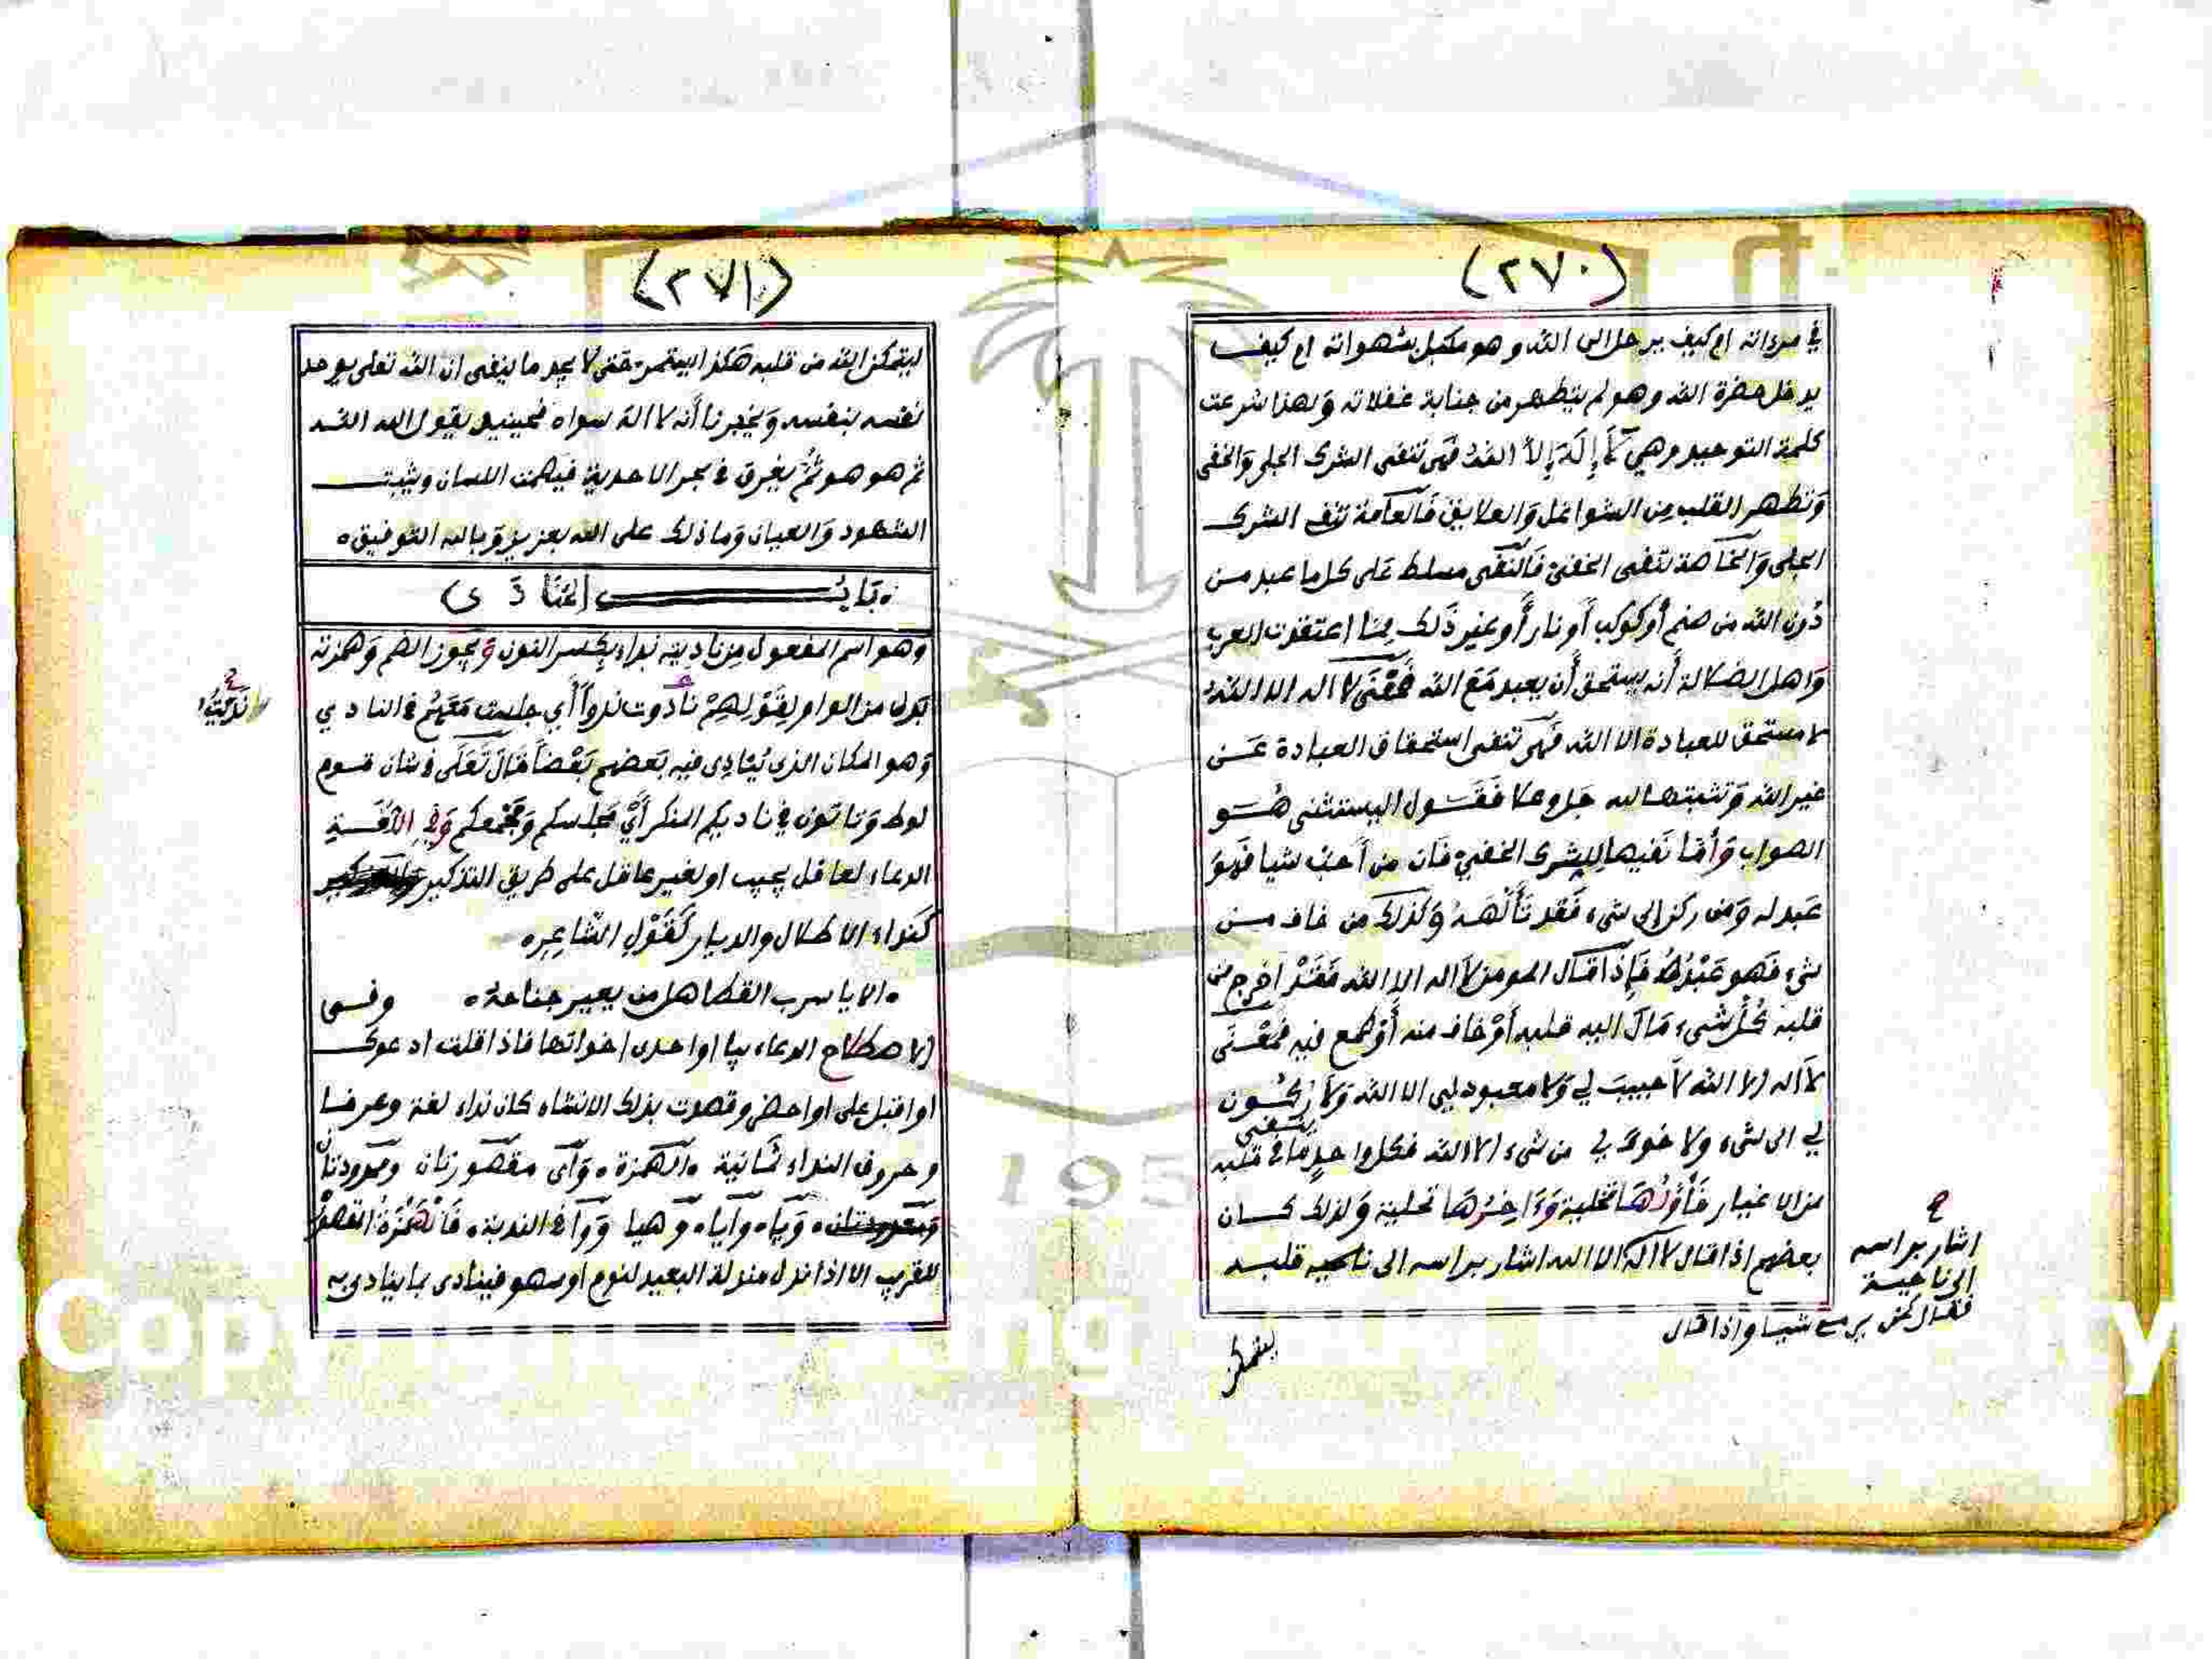 (٢٧٠)
في مرءاته ام كيف يرحل الى الله وهو مكبل بشهواته ام كيف
يدخل حضرة الله وهو لم يتطهر من جنابة غفلاته ولهذا شرعت
كلمة التوحيد وهي لَا إِلَهَ إِلاَّ اللهُ فهي تنفى الشرك الجلي والخفي
وَتطهر القلب مِن الشواغل وَالعلايق فَالعَامة تنف الشرك
الجلي وَالخَاصة تنفى الخفيّ فَالنَّفى مسلط عَلى كل ما عبد من
دُون الله من صنم أو كَوكب أو نار أَو غير ذَلك مِمّا اعتقدت العرب
وَاهل الضلالة أنه يستحق أن يعبد مَعَ الله فَمَعْنَى لا اله الا اللهُ
لا مستحق للعبادة الا الله فَهي تنفى استحقاق العبادة عَن
غير الله وَتثبتها لله جَل وعلا فَقَول اليستثنى هُو
الصواب وَأمّا نَفيها لِلشرك الخفيّ فَان من أحبّ شيا فَهوَ
عَبد له وَمن ركن الى شيء فَقد تَأَلَّهَهُ وَكذلك من خاف من
شيء فَهو عَبْدُهُ فَإِذا قَال المومن لاَ اله الا الله فَقَدْ اَخرج من
قلبه كُلّ شيء مَالَ اليه قلبه أَوْ خاف منه أَوْ طمع فيه فمَعْنَى
لاَ اله الا الله لاَ حبيبَ لي وَلا معبود لي الا الله وَلاَ رُكُون
لي الى شيء ولا خوف لي من شيء الا الله فكل واحد ينفى مَا في قلبه
من الاغيار فَأَوّلُهَا تخلية وَءَاخِرُهَا تحلية وَلذلك كان
بعضهم اذا قال لا اله الا الله اشار براسه الى ناحية قلبه
اشار براسه
الى ناحية
شيا واذا قال
ليتمكن
(٢٧١)
ليتمكن الله من قلبه هَكذا ليستمر حَتى لا يجد ما ينفى اذ الله تعلى يوحد
نفسه بنفسه وَيخبرنا أَنه لا اله سواه فحينيذ يقول الله الله
ثم هو هو ثُمَّ يغرق في بحر الاحدية فيبهت اللسان ويثبت
الشهود وَالعيان وَما ذلك على الله بعزيز وَبالله التوفيق
بَابُ المُنَادَى
وهو اسم المفعول مِن ناديته نداء بِكسر النون وَيجوز الضم وَهمزته
بَدل من الواو لِقَوْلِهِمْ نَادَوت ندواً أي جلست مَعَهُمْ في النادي
وَهو المكان الذي يُنادِى فيه بَعضهم بَعْضاً قَالَ تَعَلَى في شان قوم
لوط وَتاتون في ناديكم المنكر أَيْ مَجلسكم وَمجمعكم وَفي اللُّغَةِ
الدعاء لعاقل يجيب او لغير عاقل على طريق التذكير
كَنداء الاطلال والديار كَقَوْلِ الشاعِر
الا يا سرب القطا هل من يعير جناحه وفي
الاصطلاح الدعاء بيا او احدى اخواتها فاذا قلت ادعوك
او اقبل علي او احضر وقصدت بذلك الانشاء كان نداء لغة وعرفا
وحروف النداء ثَمَانية الهَمزة وَأَي مقصورتان وممدودتان
وَيَا وأيا وَهيا وَوَا في الندبة فَالْهَمْزَةُ المقصورة
للقريب الا اذا نزل منزلة البعيد لنوم او سهو فينادى بما ينادى به
نَدَيتهُ